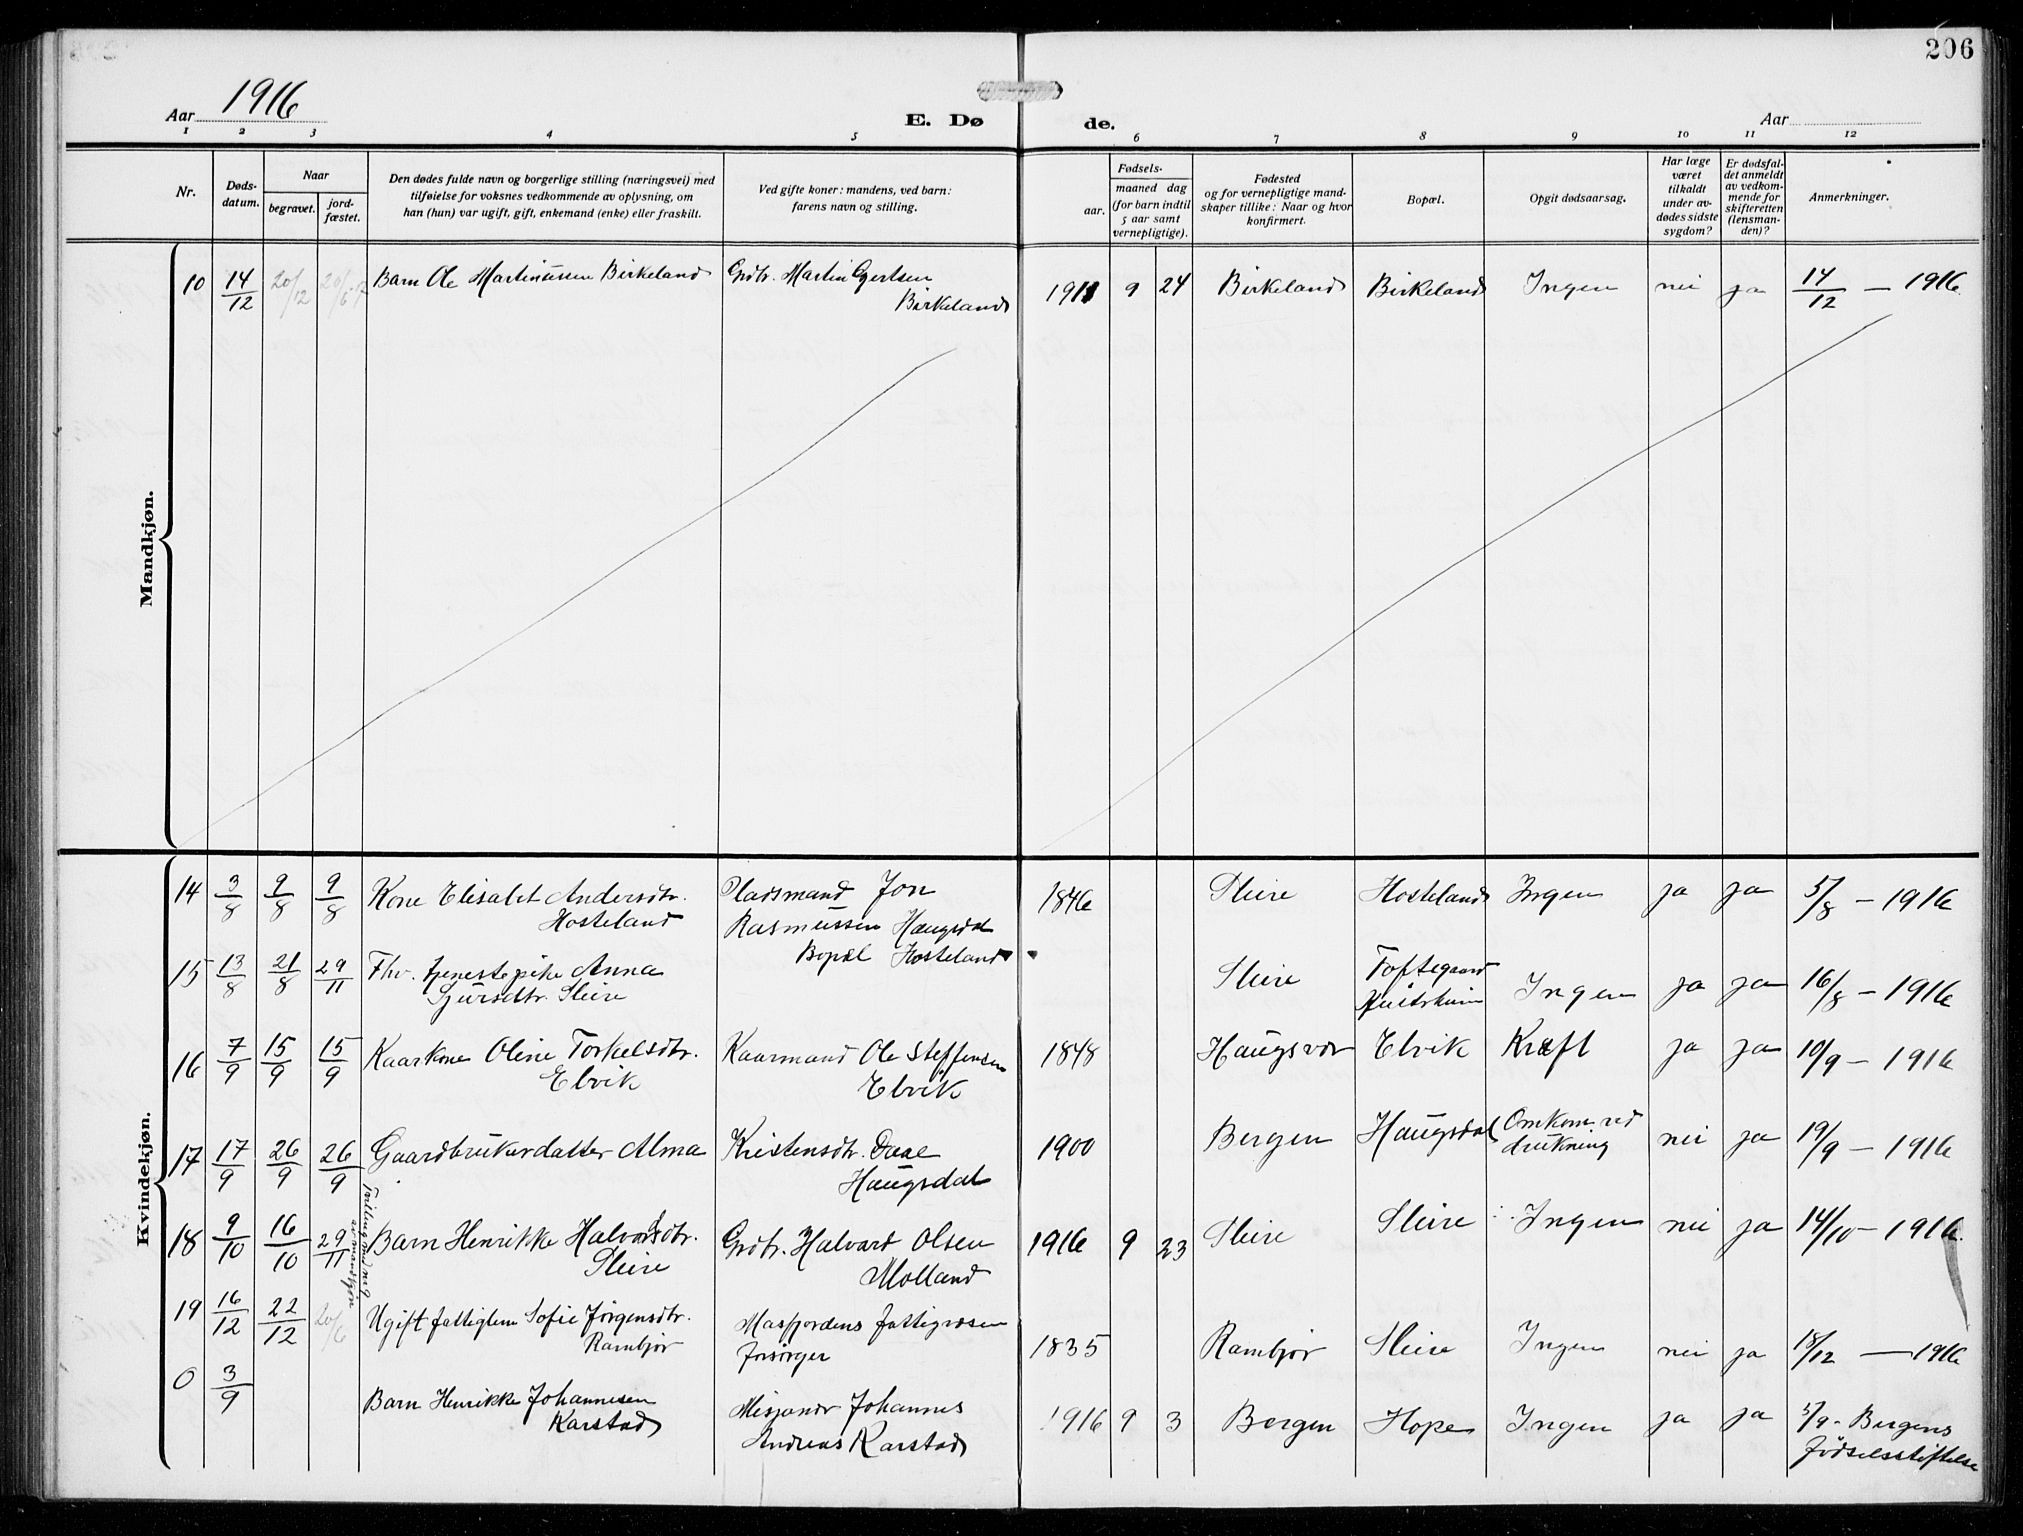 206
Aar 1916
E. Dø de.
Aar
1 2 3 4 5 6 7 8 9 10 11 12
Nr.
Døds-
datum.
Naar
begravet.
jord-
fæstet.
Den dødes fulde navn og borgerlige stilling (næringsvei) med
tilføielse for voksnes vedkommende av oplysning, om
han (hun) var ugift, gift, enkemand (enke) eller fraskilt.
Ved gifte koner: mandens, ved barn:
farens navn og stilling.
Fødsels-
aar.
maaned dag
(for barn indtil
5 aar samt
vernepligtige).
Fødested
og for vernepligtige mand-
skaper tillike: Naar og hvor
konfirmert.
Bopæl.
Opgit dødsaarsag.
Har læge
været
tilkaldt
under av-
dødes sidste
sygdom?
Er dødsfal-
det anmeldt
av vedkom-
mende for
skifteretten
(lensman-
den)?
Anmerkninger.
Mandkjøn.
10 14/12 20/12 20/6 17 Barn Ole Martinussen Birkeland Grdbr. Martin Gjertsen
Birkeland 1911 9 24 Birkeland Birkeland Ingen nei ja 14/12 — 1916
Kvindekjøn.
14 3/8 9/8 9/8 Kone Elisabet Andersdtr. Pladsmand Jon 1846 Sleire Hosteland Ingen ja ja 5/8 — 1916
Hosteland Rasmussen Haugsdal
Bopæl Hosteland
15 13/8 21/8 29/11 Fhv. tjenestepike Anna Sleire Toftegaard Ingen ja ja 16/8 — 1916
Sjursdtr. Sleire
16 7/9 15/9 15/9 Kaarkone Oline Torkelsdtr. Kaarmand Ole Steffensen 1848 Haugsvær Elvik Kræft ja ja 10/9 — 1916
Elvik Elvik
17 17/9 26/9 26/9 Gaardbrukerdatter Alma Kristensdtr. Daae 1900 Bergen Haugsdal Omkom ved nei ja 19/9 — 1916
Haugsdal drukning
18 9/10 16/10 29/11 Barn Henrikke Halvardsdtr. Grdbr. Halvard Olsen 1916 9 23 Sleire Sleire Ingen nei ja 14/10 — 1916
Tvilling med nr 9
av mandkjøn
Sleire Molland
19 16/12 22/12 20/6 Ugift fattiglem Sofie Jørgensdtr. Masfjordens fattigvæsen 1835 Rambjør Sleire Ingen nei ja 18/12 — 1916
Rambjør forsørger
0 3/9 Barn Henrikke Johannesen Misjonær Johannes 1916 9 3 Bergen Hope Ingen ja ja 5/9 - Bergens
Karstad Andreas Karstad fødselsstiftelse